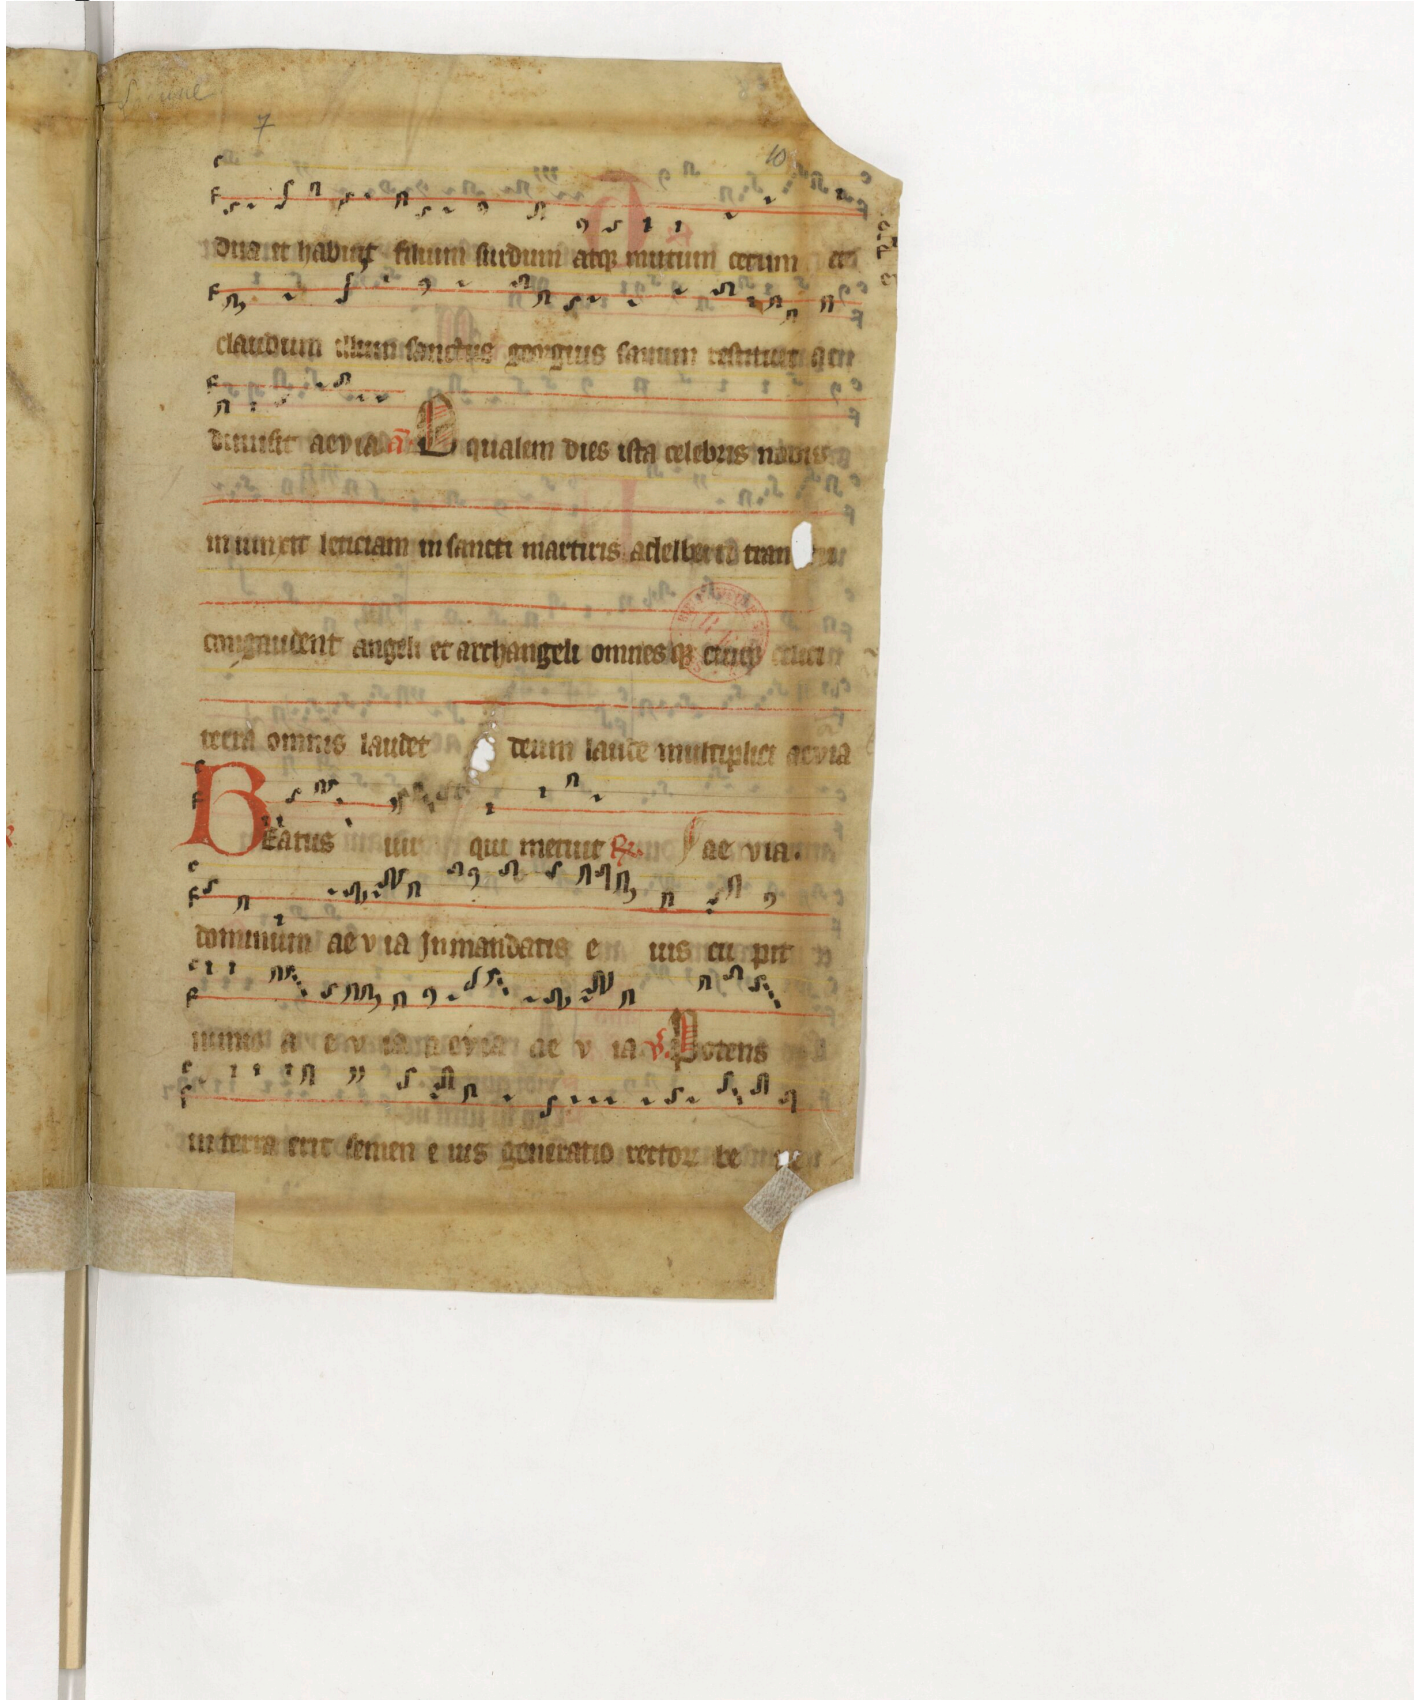 7
10
dua et habuit filium surdum atq; mutum cecum et
claudum illum sanctus georgius sanum restituit qui
diuisit aevia a qualem dies ista celebris nobis
iniunxit leticiam in sancti martiris adelberti tran
congaudent angeli et archangeli omnesq; ciues celici
terra omnis laudet deum laude multiplici aevia
Beatus uir qui metuit R ae via.
dominum ae v ia In mandatis e ius cu pit
nimis a e v ia a evia ae v ia v Potens
in terra erit semen e ius generatio rector be